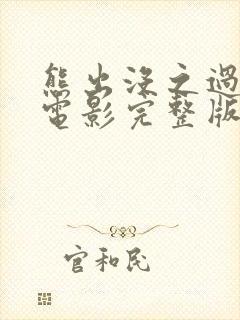 熊出没之过
电影完整版
官和民